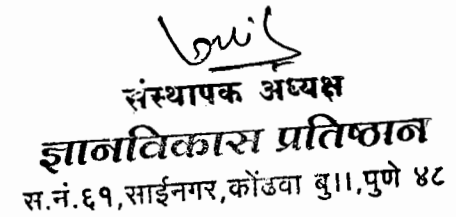 संस्थापक अध्यक्ष
ज्ञानविकास प्रतिष्ठान
स.नं.६१,साईनगर,कोंढवा बु।।,पुणे ४८